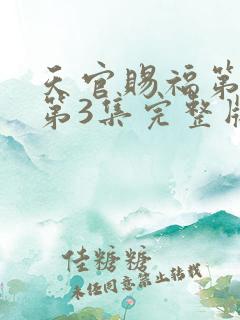 天官赐福第
第3集完整版
佳糖糖
未经同意禁止转载